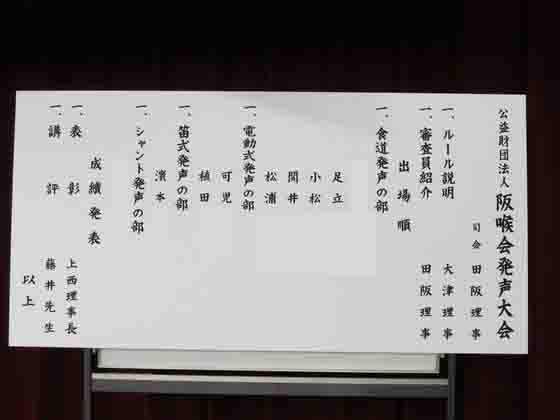 公益財団法人 阪喉会発声大会
司会 田阪理事
一、ルール説明 大津理事
一、審査員紹介 田阪理事
出場順
一、食道発声の部
足立
小松
間井
松浦
一、電動式発声の部
可児
植田
一、笛式発声の部
濱本
一、シャント発声の部
成績発表
一、表彰 上西理事長
一、講評 藤井先生
以上